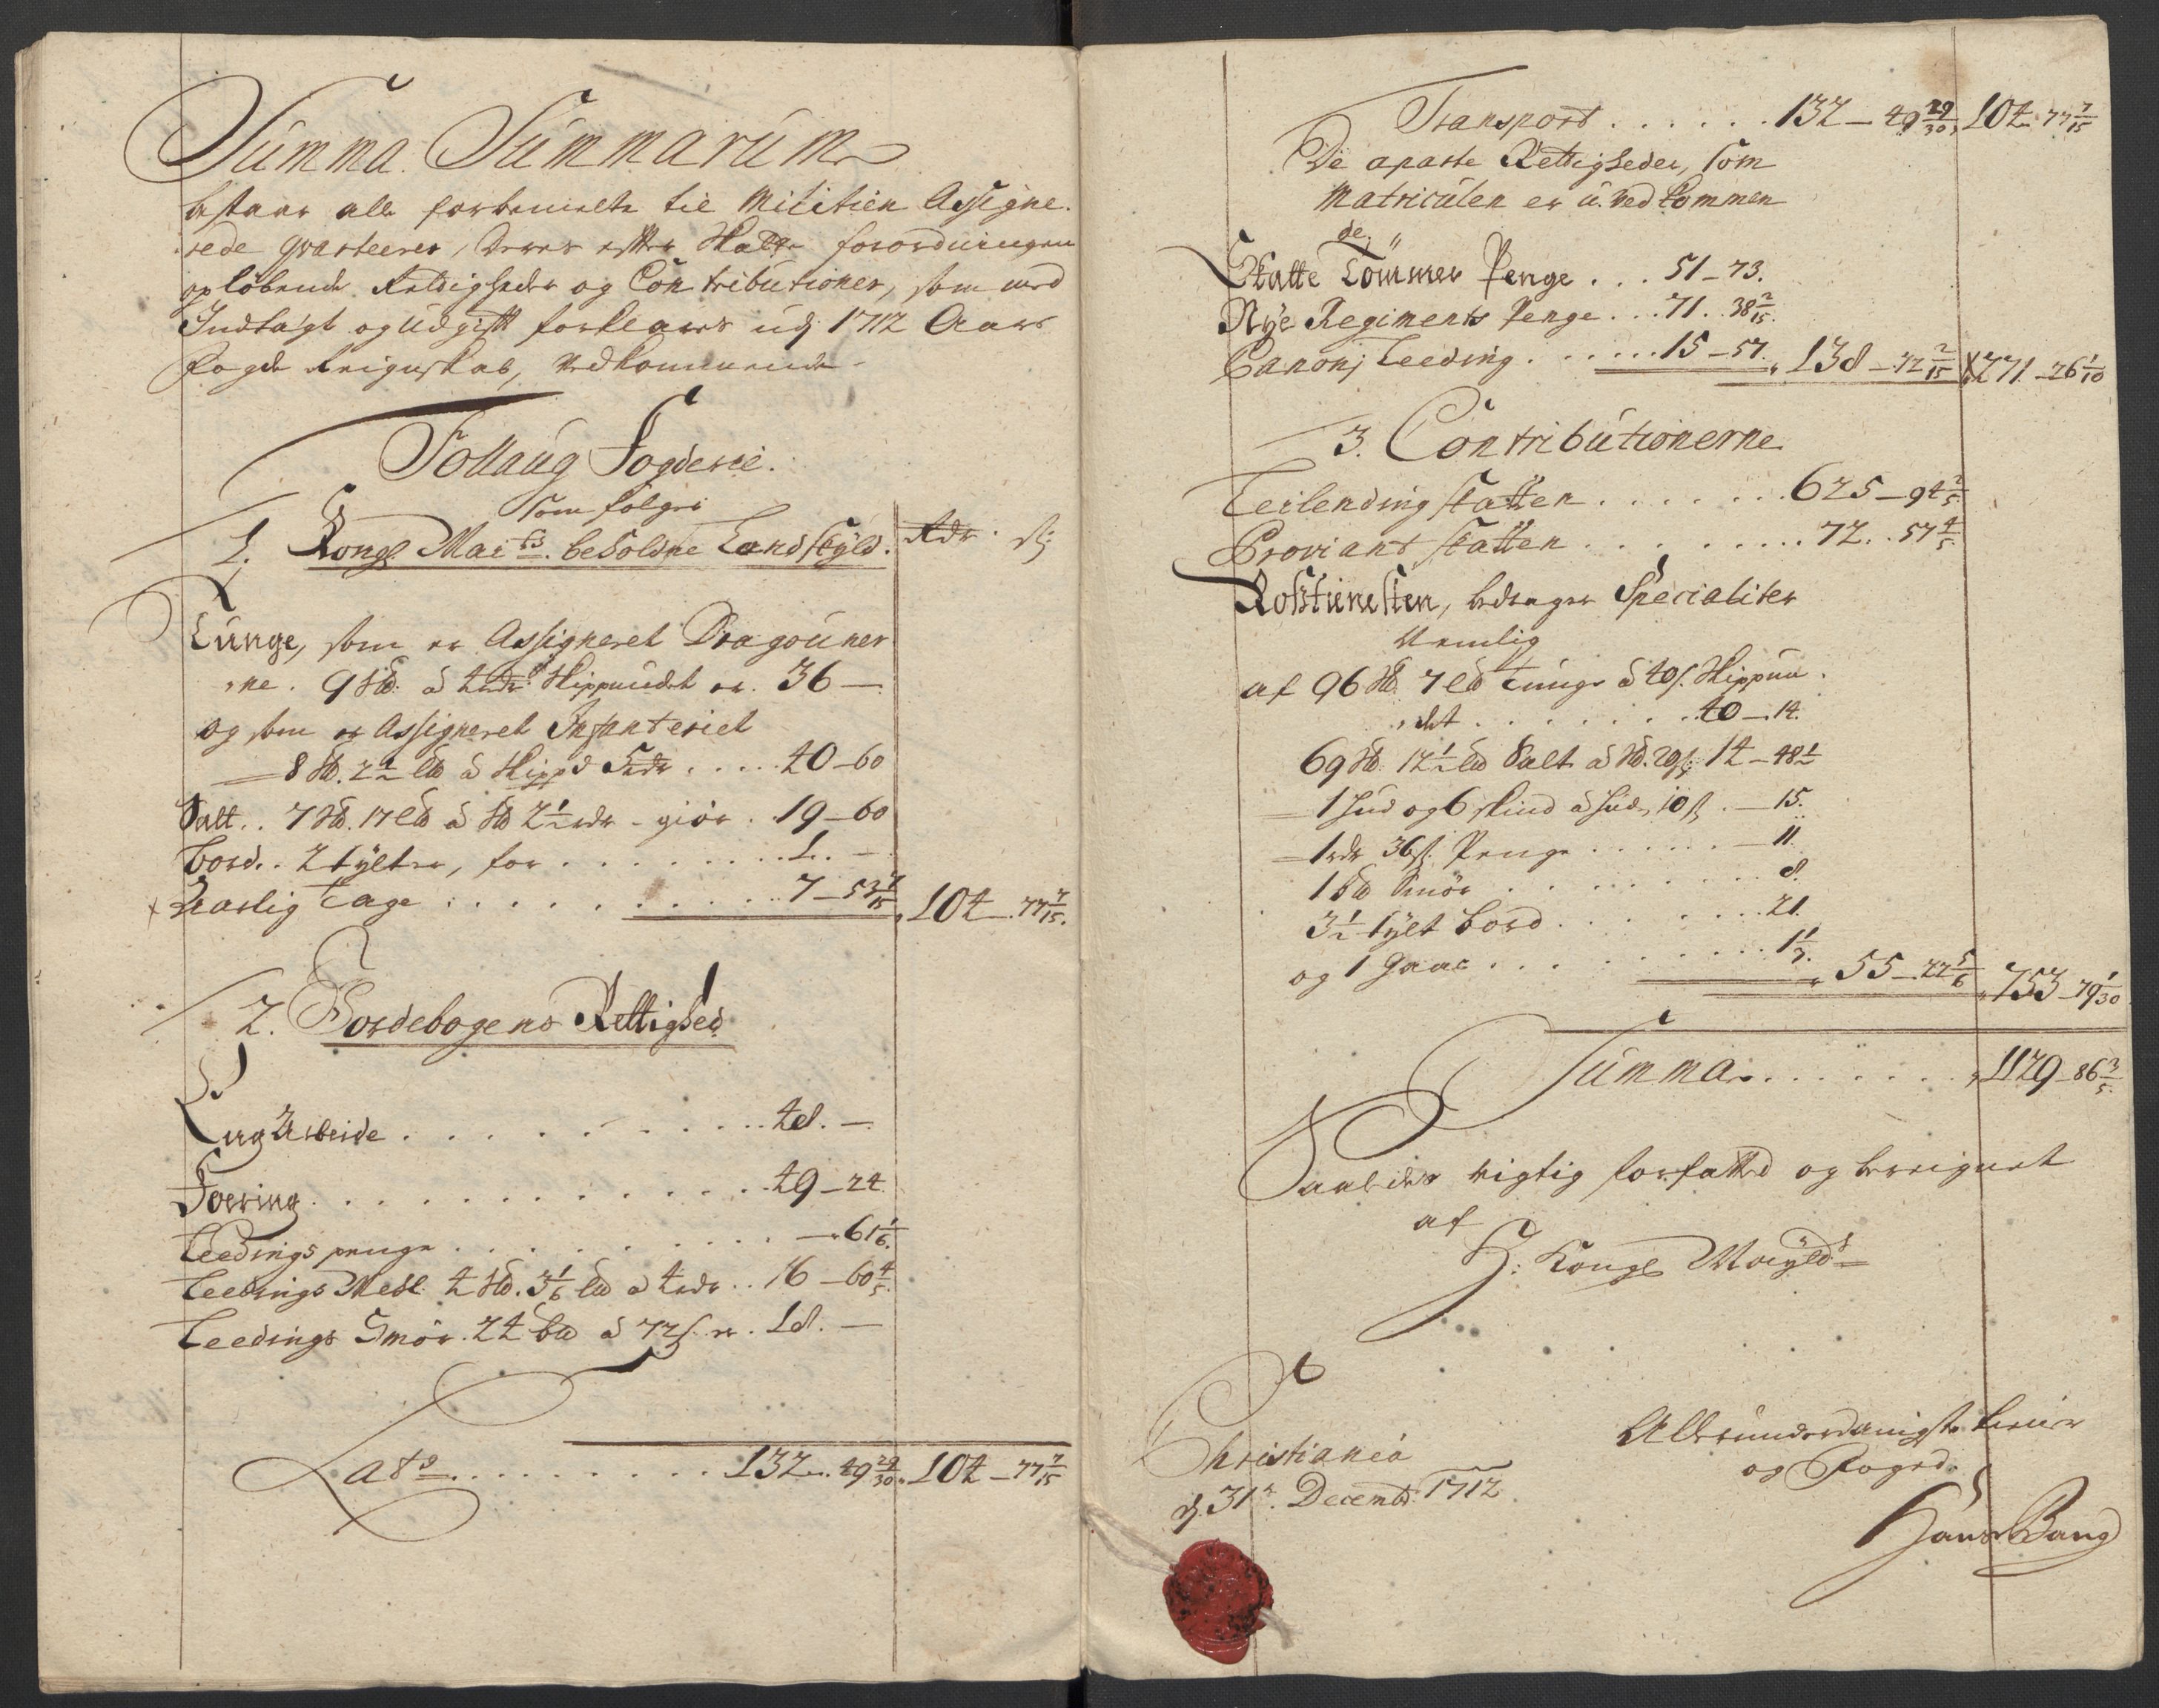 Summa Summarum
bestaar alle forbemelte til Militien Assigne-
rede qvarteerer, deres efter Skatte forordningen
opløbende Rettigheder og Contributioner, som ved
Indtægt og Udgift forklares udj 1712 Aars
Fogde Reignskab, vedkommende
Follaug Fogderie.
Som følger
1. Kongl Maits. beholdne Landskyld. Rdr. ß
Tunge, som er Assigneret Dragouner
ne. 9 Skd: à 4 rdr Skippundet er. 36 —
og som er Assigneret Infanteriet
— 8 Skd. 2½ Lld à Skippd 5 rdr ..... 40 — 60
Salt .. 7 Skd. 17 Lld à Skd 2½ rdr - giør . 19 — 60
Bord. . 2 tylter, for ......... 1. —
Aarlig Tage ........... 7 — 53 7/15 104 — 77 7/15.
2. Jordebogens Rettighed
Lug Arbeide ............ 48. —
Foering ............ 49 — 24
Leedings penge .......... — 61 1/6.
Leedings Meel 4 Skd. 3 1/6 Lld à 4 rdr .. 16 — 60 4/5.
Leedings Smør. 24 bld à 72 ß er. 18. —
Lats ......... 132 — 49 29/30 104 — 77 7/15
Transport ...... 132 — 49 29/30 104 77 7/15
De aparte Rettigheder, som
Matriculen er u-vedkommen
de,
Skatte Tømmer Penge ... 51 — 73.
Nye Regiments Penge ... 71 .. 38 2/15.
Canonj Leeding ...... 15 — 57. 138 — 72 2/15 271 — 26 1/10
3. Contributionerne
Leilending skatten ....... 625 — 94 2/5
Proviant skatten ......... 72 .. 57 4/5.
Rosstienesten, bedrager Specialiter
Nemlig
af 96 Skd. 7 Lld Tunge à 40 ß. Skippun-
det ....... 40 — 14.
69 Skd. 12½ Lld Salt à Skd. 20 ß: 14 — 48½
— 1 Hud og 6 skind à Hud 10 ß . — 15.
— 1 rdr 36 ß. Penge ...... — 11.
1 bld Smør ......... 8.
3½ tylt bord ........ 21.
og 1 Gaas .......... 1⅓. 55 — 22 5/6 753 — 79 1/30
Summa ....... 1129 — 86 3/5.
Saaledes rigtig forfatted og bereignet
af
H: Kongl Mayts
Christiania
dj 31te. Decembr: 1712
Allerunderdanigste tiener
og Foged
Hans Bang